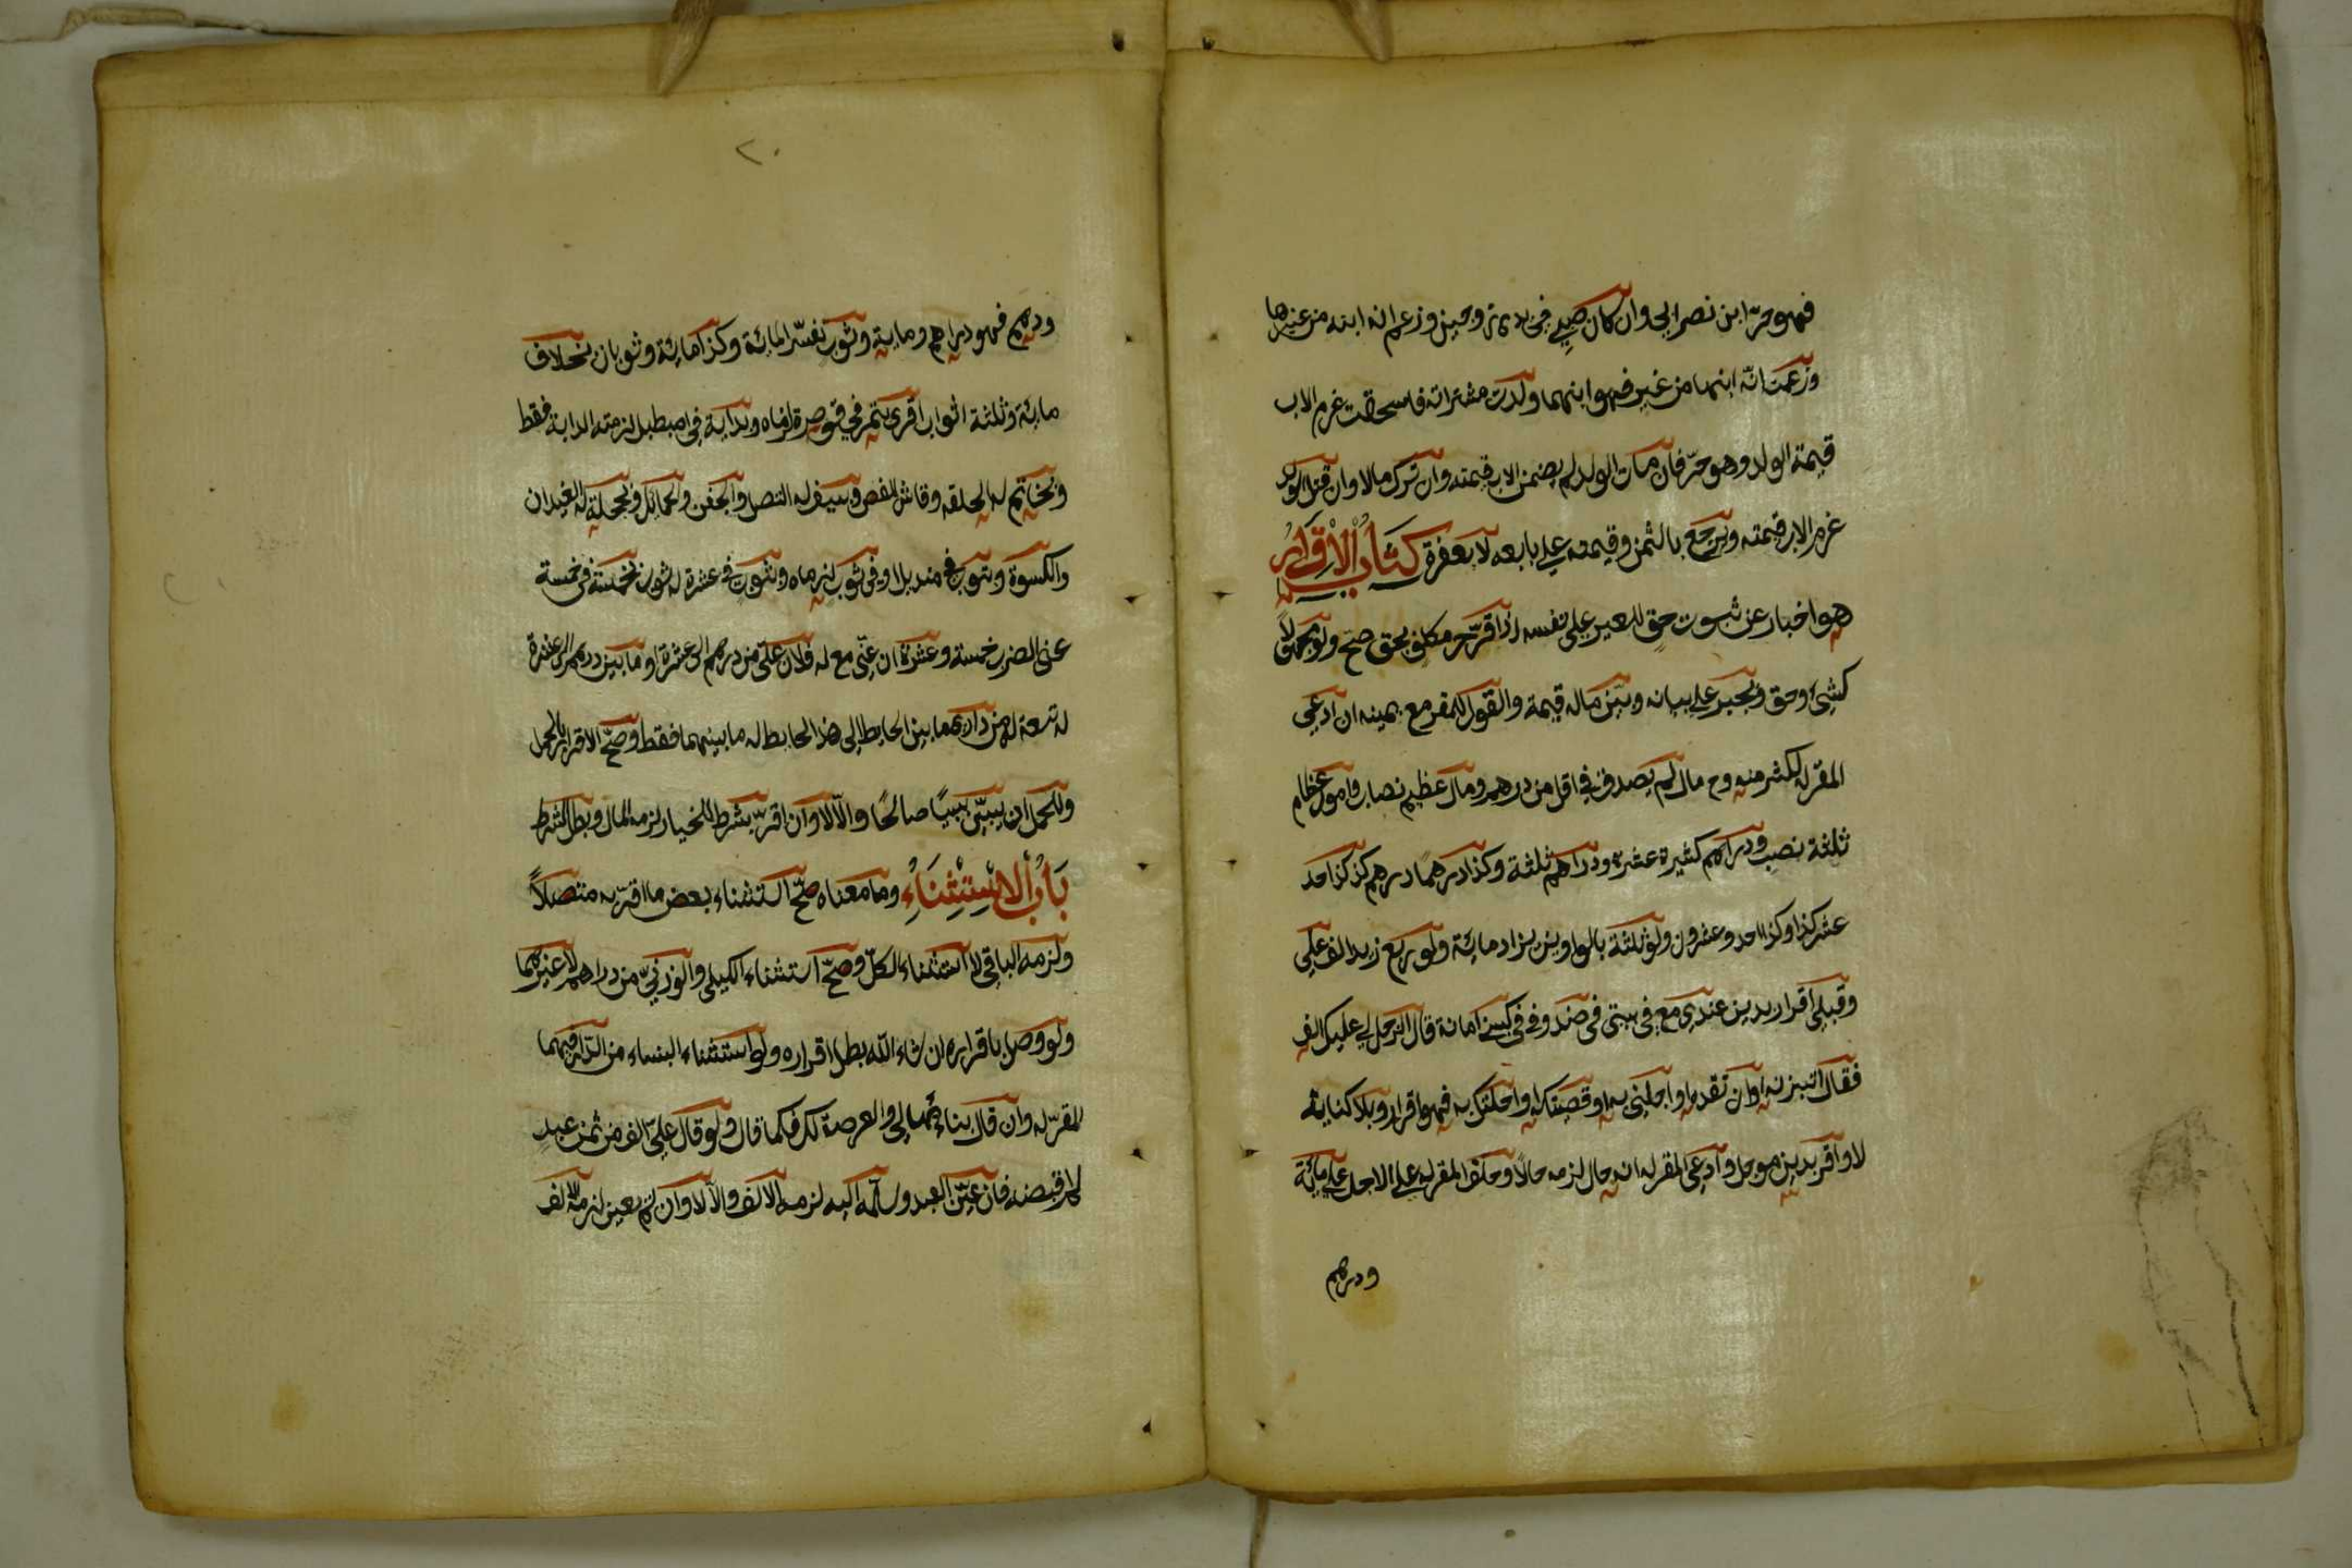 فهو حرّ ابن نصرانى وان كان صبى فى يد زوجين وزعم انه ابنه من غيرها
وزعمت انّه ابنها من غيره فهو ابنهما ولدت مشتراته فاستحقت غرم الاب
قيمة الولد وهو حرّ فان مات الولد لم يضمن الاب قيمته وان ترك مالا وان قتل الولد
غرم الاب قيمته ويرجع بالثمن وقيمته على بايعه لا بعقره كتاب الاقرار
هو اخبار عن ثبوت حق للغير على نفسه اذا اقرّ حر مكلف بحق صحّ ولو مجهولاً
كشئ وحق ويجبر على بيانه ويبيّن ماله قيمة والقول للمقر مع يمينه ان ادعى
المقرّ له اكثر منه وفى مال لم يصدق فى اقل من درهم ومال عظيم نصاب واموال عظام
ثلثة نصب ودراهم كثيرة عشرة ودراهم ثلثة وكذا درهما درهم كذا كذا احد
عشر كذا وكذا احد وعشرون ولو ثلثة بالواو يزاد مائة ولو ربع زيد الف على
وقبلى اقرار بدين عندى مع فى بيتى فى صندوقى فى كيسى امانة قال الرجل لى عليك الف
فقال اتزنه او انتقده او اجلنى به او قضيتكه او احلتك به فهو اقرار وبلا كناية
لا واقرّ بدين موجل وادعى المقر له انه حال لزمه حالاً وحلف المقر له على الاجل على مائة
ودرهم
٢٠
ودرهم فهو دراهم ومائة وثوب يفسّر المائة وكذا مائة وثوبان بخلاف
مائة وثلثة اثواب اقرّ بتمر فى قوصرة لزماه وبدابة فى اصطبل لزمته الدابة فقط
وبخاتم له الحلقه والفص وبسيف له النصل والجفن والحمائل وبحجلة له العيدان
والكسوة وبثوب فى منديل او فى ثوب لزماه وبثوب فى عشرة له ثوب بخمسة فى خمسة
عنى الضرب خمسة وعشرة ان عنى مع له فلان علىّ من درهم الى عشرة او ما بين درهم الى عشرة
له تسعة له من دارى ما بين الحايط الى هذا الحايط له ما بينهما فقط وصحّ الاقرار بالحمل
وللحمل ان يبيّن سببًا صالحًا والّا لا وان اقرّ بشرط الخيار لزمه المال وبطل الشرط
باب الاستثناء وما معناه صحّ استثناء بعض ما اقرّ به متصلاً
ولزمه الباقى لا استثناء الكلّ وصحّ استثناء الكيلى والوزنىّ من دراهم لا غيرهما
ولو وصل باقراره ان شاء الله بطل اقراره ولو استثناء البناء من الدار فهما
للمقرّ له وان قال بناءها لى والعرصة لك فكما قال ولو قال علىّ الف من ثمن عبد
لم اقبضه فان عيّن العبد وسلمه اليه لزمه الالف والّا لا وان لم يعين لزمه الالف